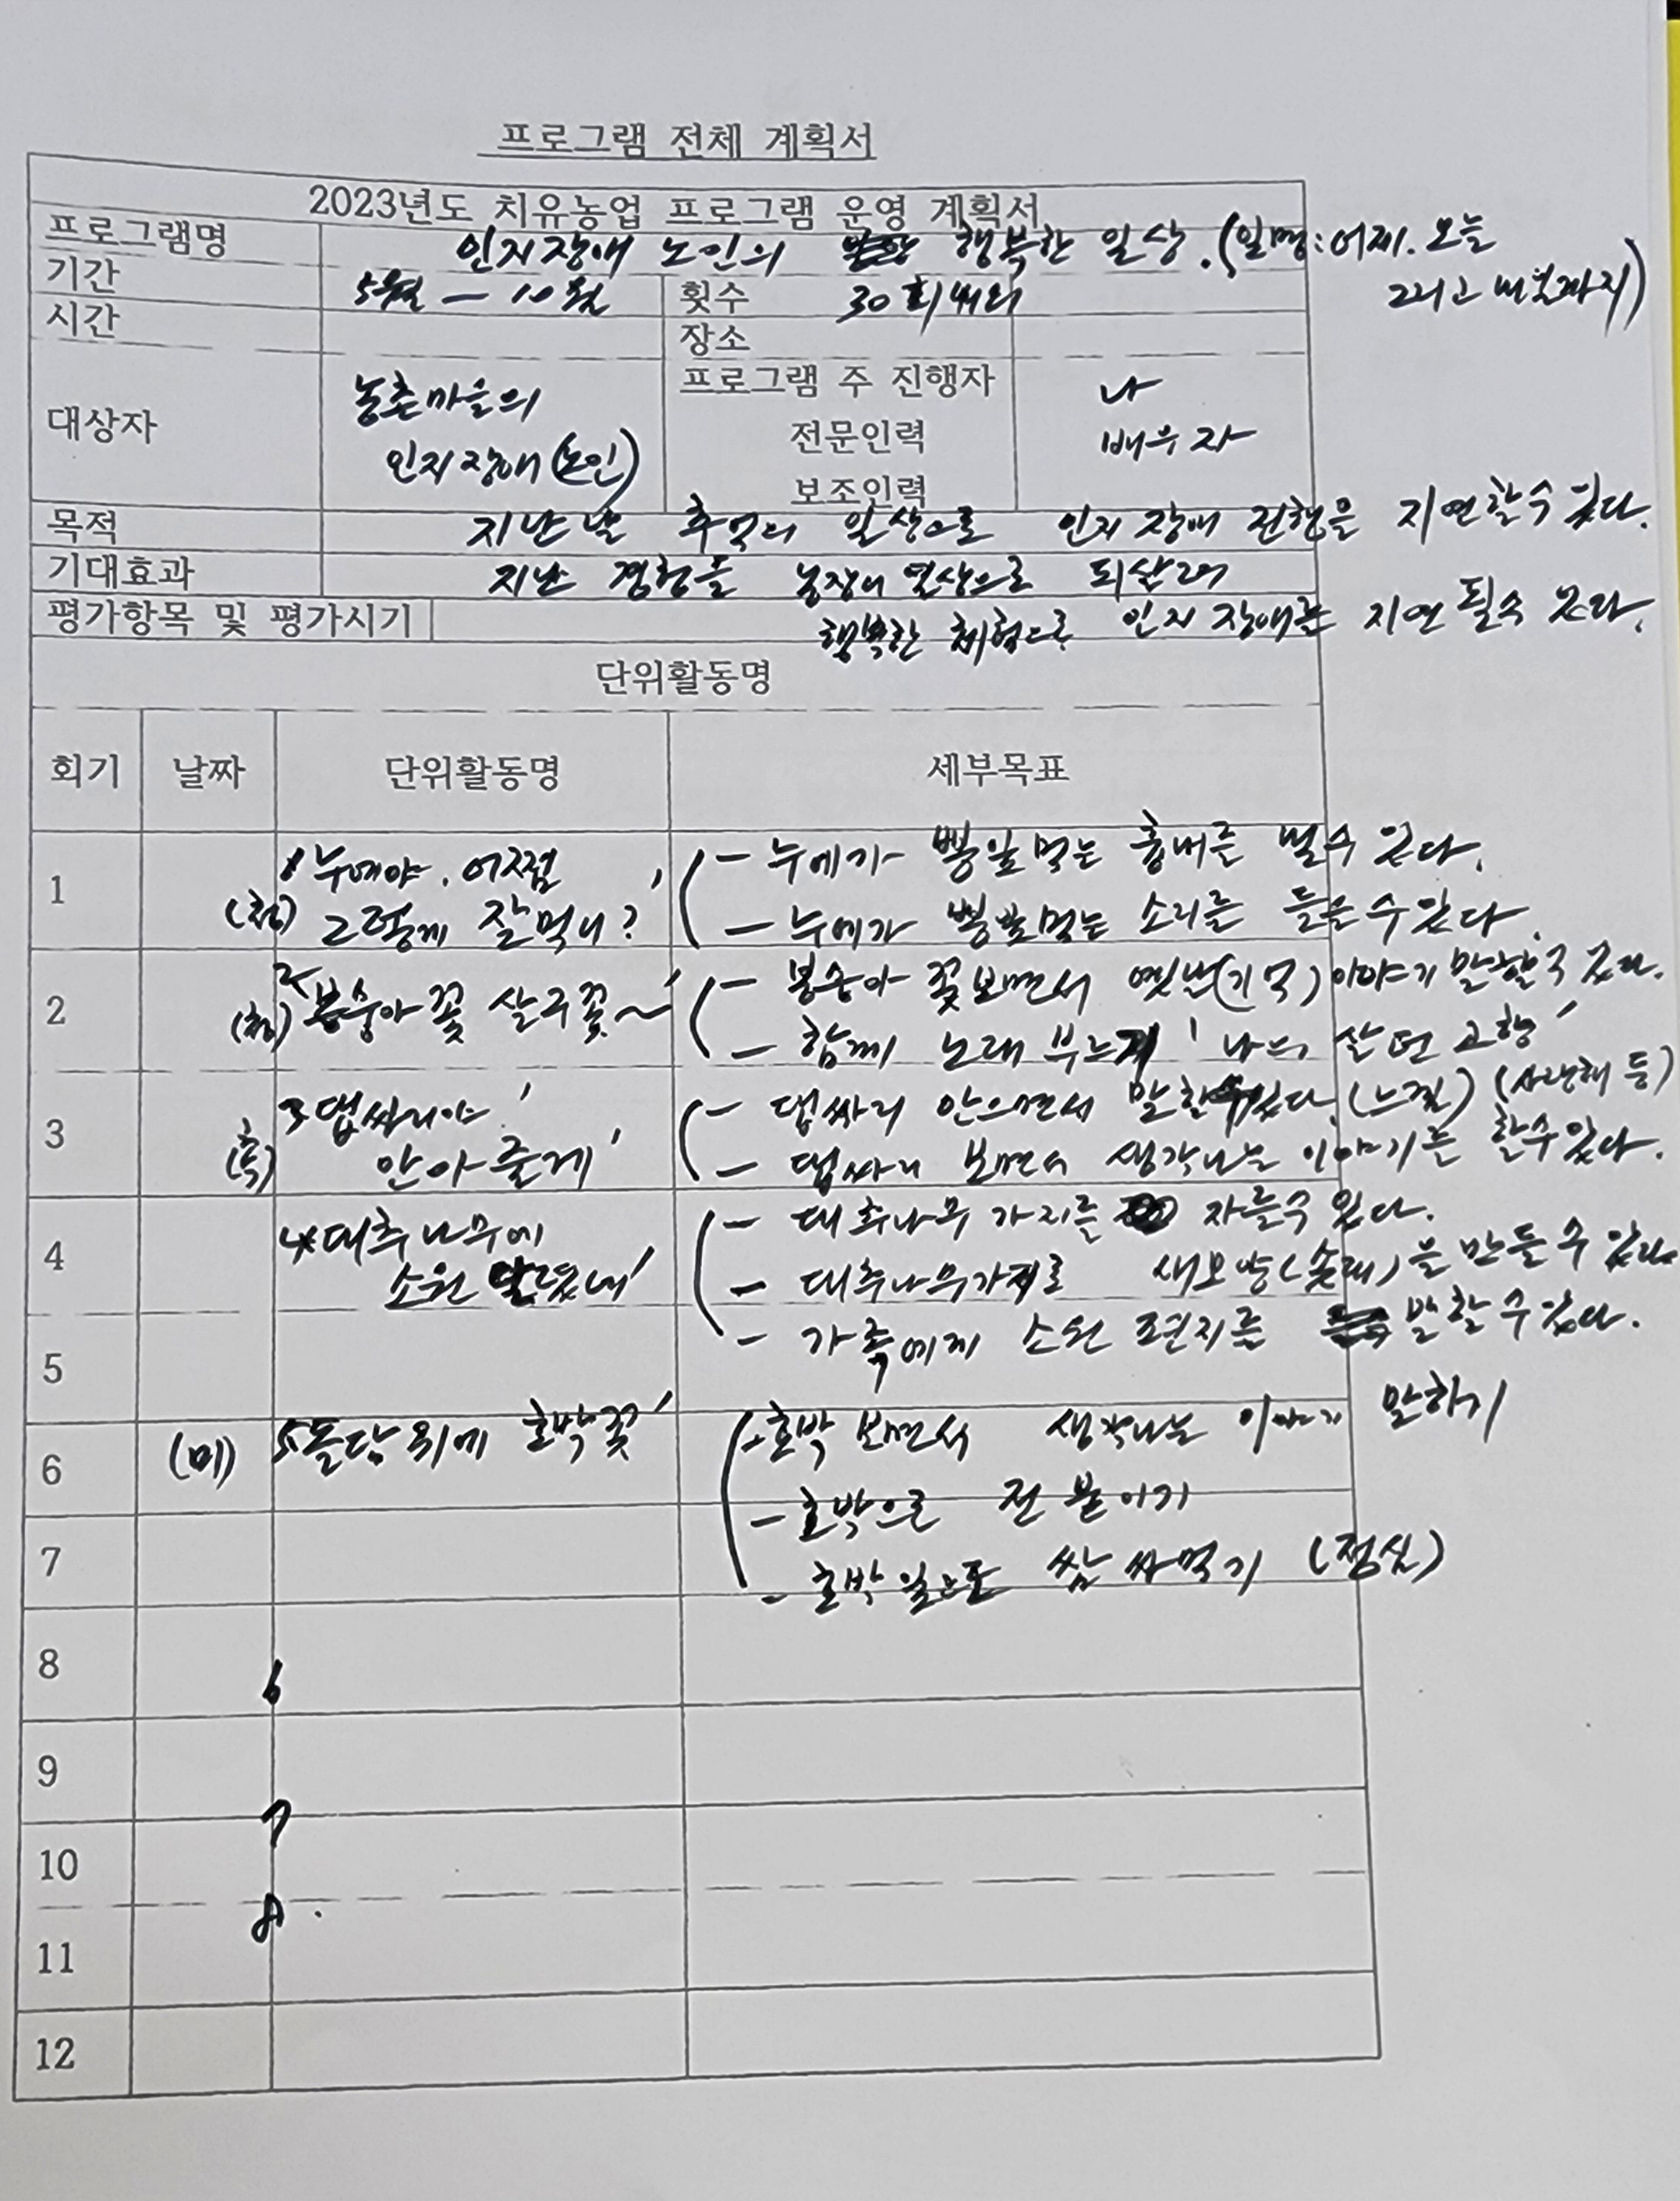 프로그램 전체 계획서
2023년도 치유농업 프로그램 운영 계획서
프로그램명 인지장애 노인의 행복한 일상. (일명: 어제. 오늘
그리고 내일까지)
기간 5월 - 10월 횟수 30회
시간 장소
대상자 농촌마을의 인지장애 (노인)
프로그램 주 진행자 나
전문인력 배우자
보조인력
목적 지난날 추억의 일상으로 인지장애 진행을 지연할수 있다.
기대효과 지난 경험들 농장의 일상으로 되살려
행복한 체험으로 인지장애는 지연 될수 있다.
평가항목 및 평가시기
단위활동명
회기 날짜 단위활동명 세부목표
1 (청) 1 누에야. 어쩜 그렇게 잘먹니?
- 누에가 뽕잎먹는 흉내를 낼수 있다.
- 누에가 뽕잎먹는 소리를 들을수 있다.
2 (청) 2 봉숭아꽃 살구꽃~
- 봉숭아 꽃보면서 옛날(기억) 이야기 말할수 있다.
- 함께 노래 부르기 '나의 살던 고향'
3 (촉) 3 댑싸리야! 안아줄게'
- 댑싸리 안으면서 말할수있다. (느낌) (사랑해 등)
- 댑싸리 보면서 생각나는 이야기를 할수있다.
4 4 대추나무에 소원 달렸네'
- 대추나무 가지를 자를수 있다.
- 대추나무가지로 새모양(솟대)을 만들 수 있다.
- 가족에게 소원 편지를 말할 수 있다.
5
6 (미) 5 돌담위에 호박꽃'
- 호박 보면서 생각나는 이야기 말하기
- 호박으로 전 붙이기
- 호박잎으로 쌈 싸먹기 (점심)
7
8
6
9
7
10
8.
11
12